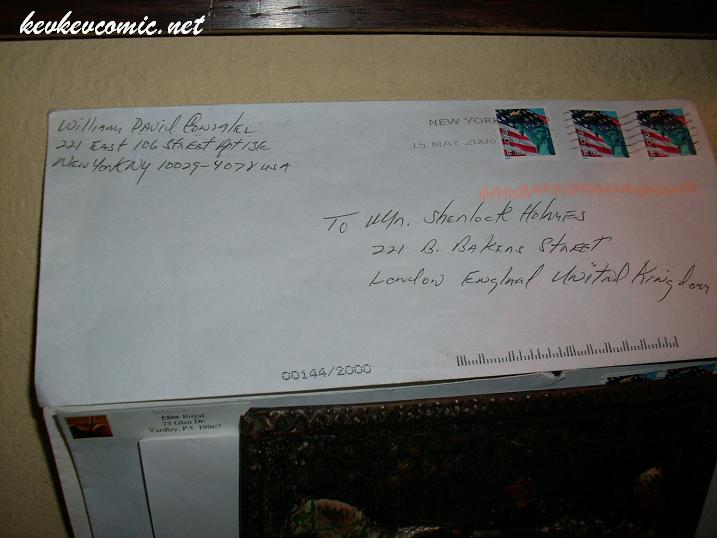 kevkevcomic.net
William David Gonzalez
221 East 106 Street Apt 13E
New York NY 10029-4078 USA
NEW YORK
15 MAY 2006
To Mr. Sherlock Holmes
221 B. Bakers Street
London England United Kingdom
00144/2000
Royal
73 Glen Dr.
Yardley, PA 19067